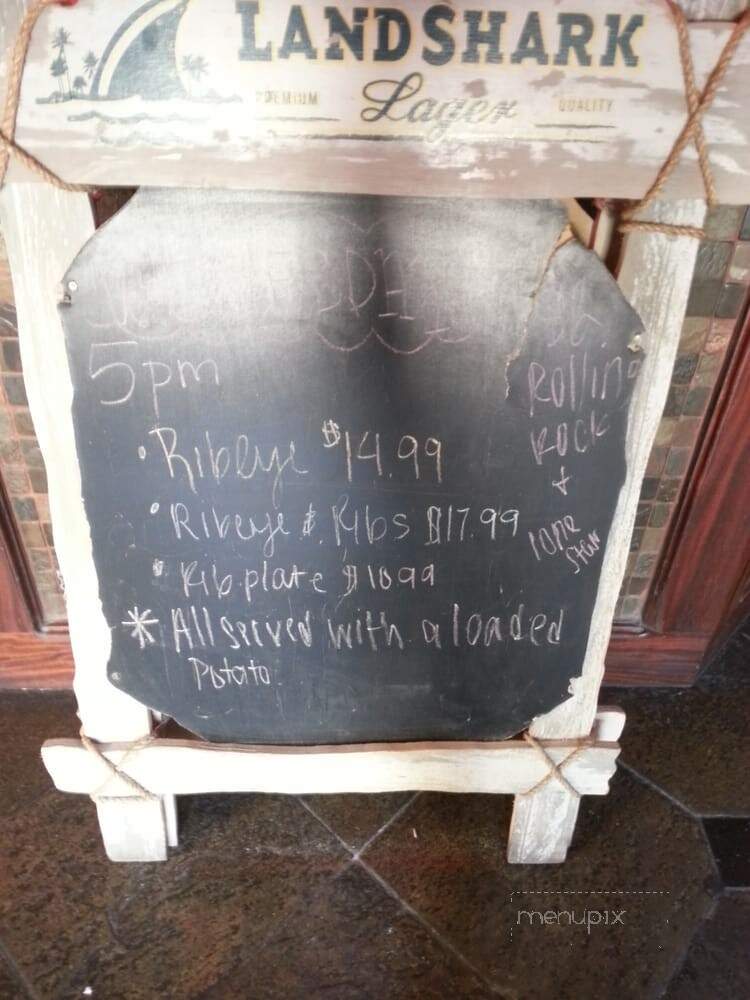 LANDSHARK
PREMIUM Lager QUALITY
5pm
• Ribeye $14.99
• Ribeye & Ribs $17.99
• Rib plate $10.99
* All served with a loaded
Potato
Rolling
Rock
+
lone
star
menupix